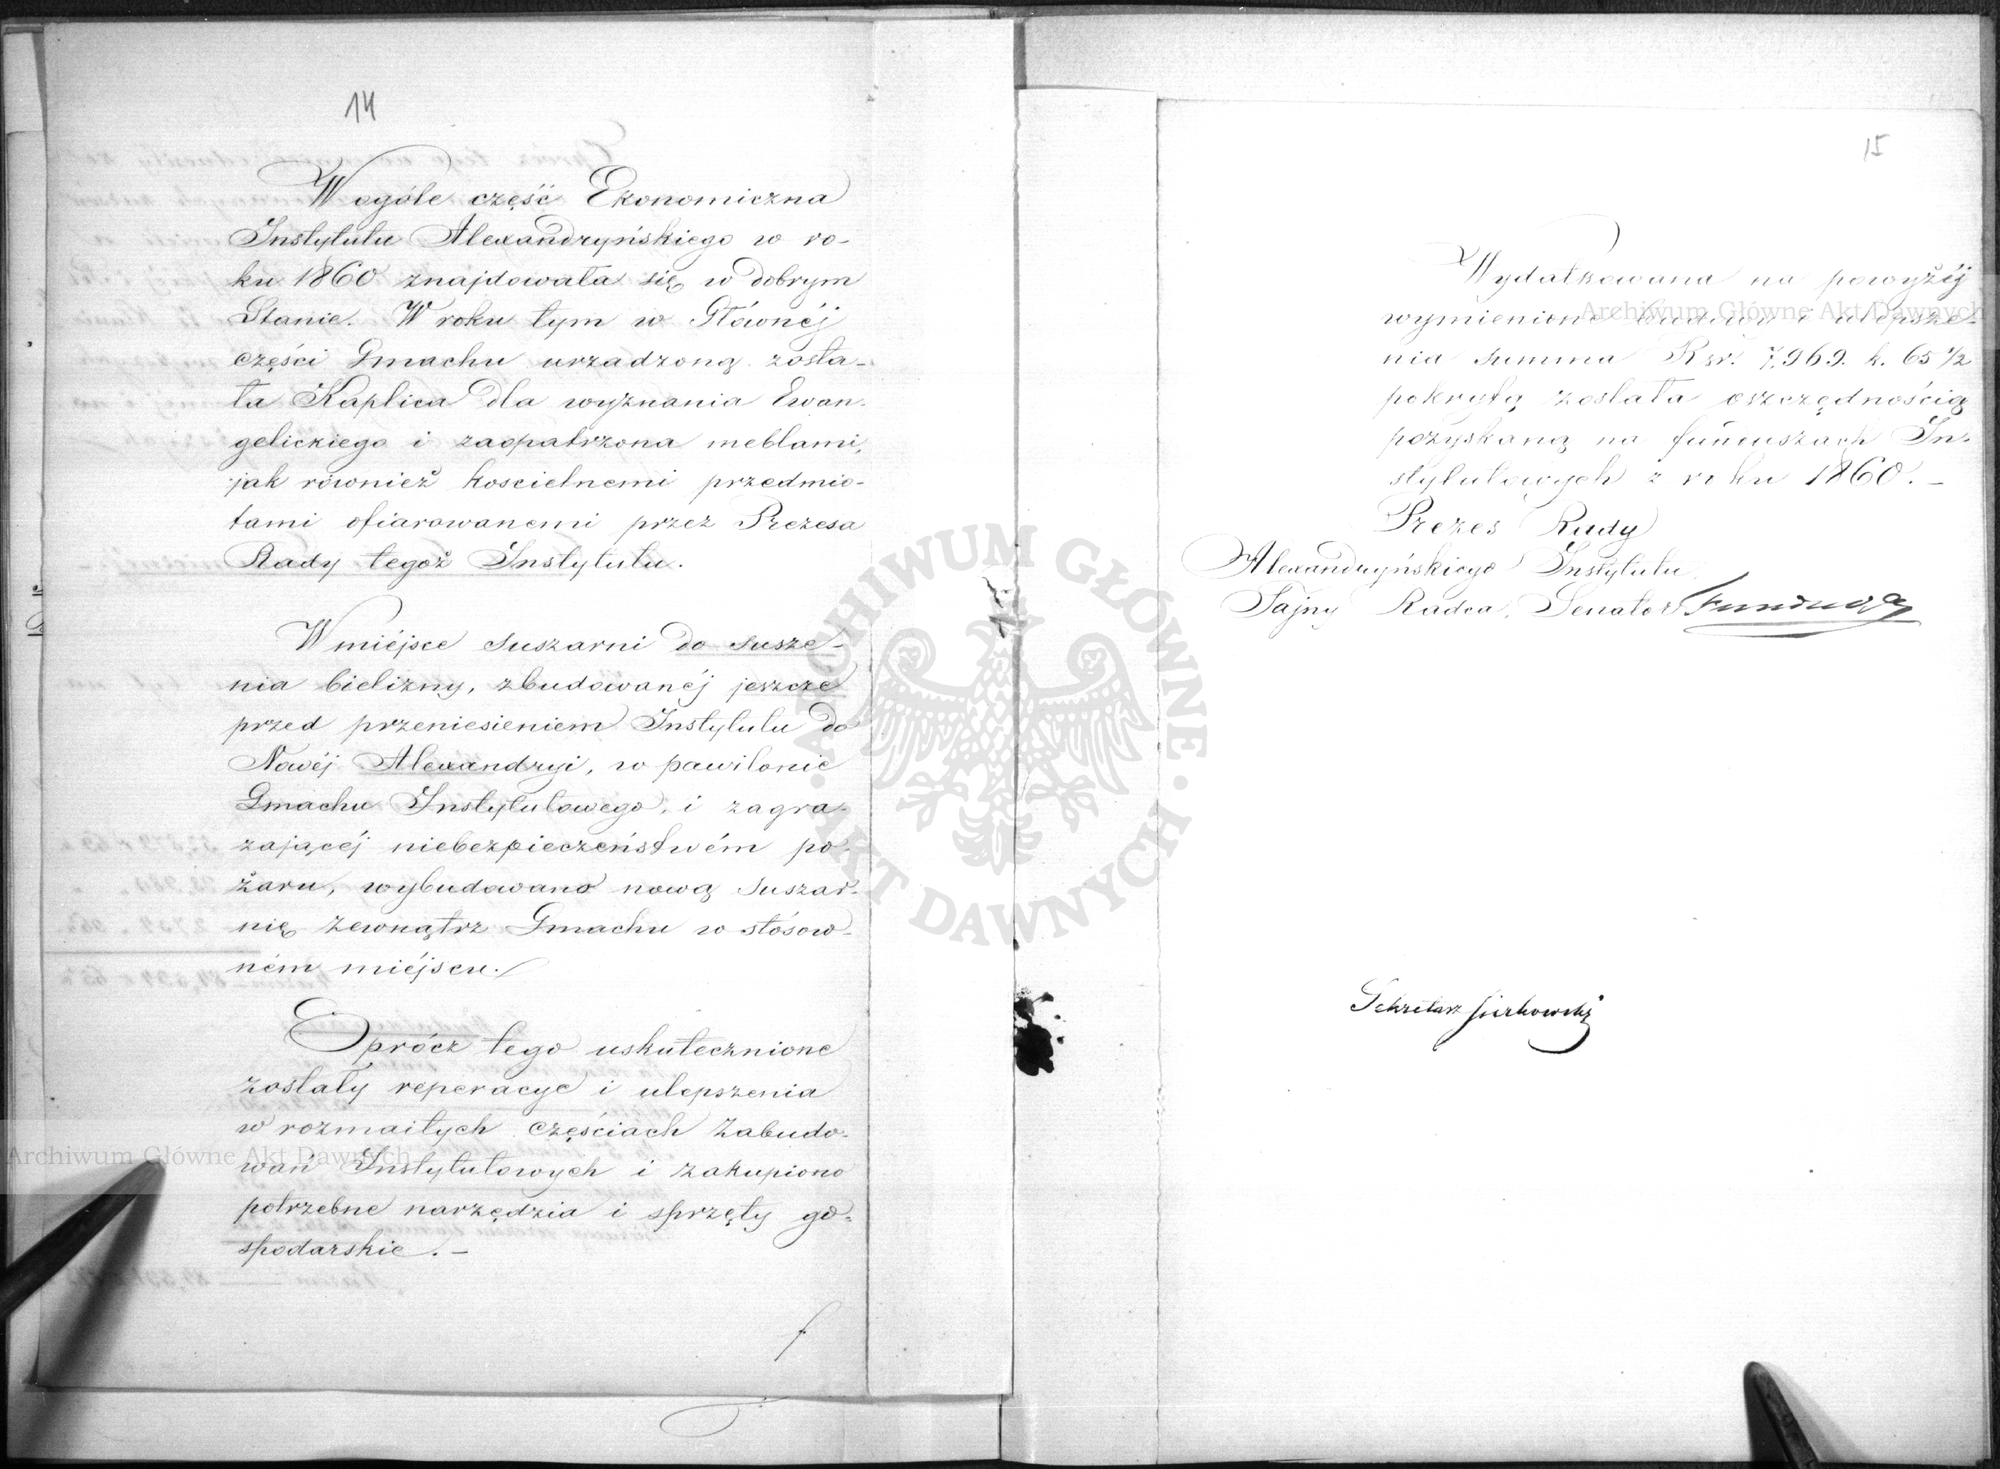 14
W ogóle część Ekonomiczna
Instytutu Alexandryńskiego w ro-
ku 1860 znajdowała się w dobrym
Stanie. W roku tym w Głównéj
części Gmachu urządzoną zosta-
ła Kaplica dla wyznania Ewan-
gelickiego i zaopatrzona meblami,
jak również koscielnemi przedmio-
tami ofiarowanemi przez Prezesa
Rady tegoż Instytutu.
W miéjsce suszarni do susze-
nia bielizny, zbudowanéj jeszcze
przed przeniesieniem Instytutu do
Nowéj Alexandryi, w pawilonie
Gmachu Instytutowego, i zagra-
żającéj niebezpieczeństwém po-
żaru, wybudowano nową suszar-
nię zewnątrz Gmachu w stósow-
ném miéjscu.
Oprócz tego uskutecznione
zostały reperacye i ulepszenia
w rozmaitych częściach Zabudo-
wań Instytutowych i zakupiono
potrzebne narzędzia i sprzęty go-
spodarskie. –
15
Wydatkowana na powyżéj
wymienione budowy i ulepsze-
nia summa Rsr. 7,969. k. 65 1/2
pokrytą została oszczędnością
pozyskaną na funduszach In-
stytutowych z roku 1860. –
Prezes Rady
Alexandryńskiego Instytutu
Tajny Radca, Senator
Sekretarz
ARCHIWUM GŁÓWNE
AKT DAWNYCH
Archiwum Główne Akt Dawnych
Archiwum Główne Akt Dawnych